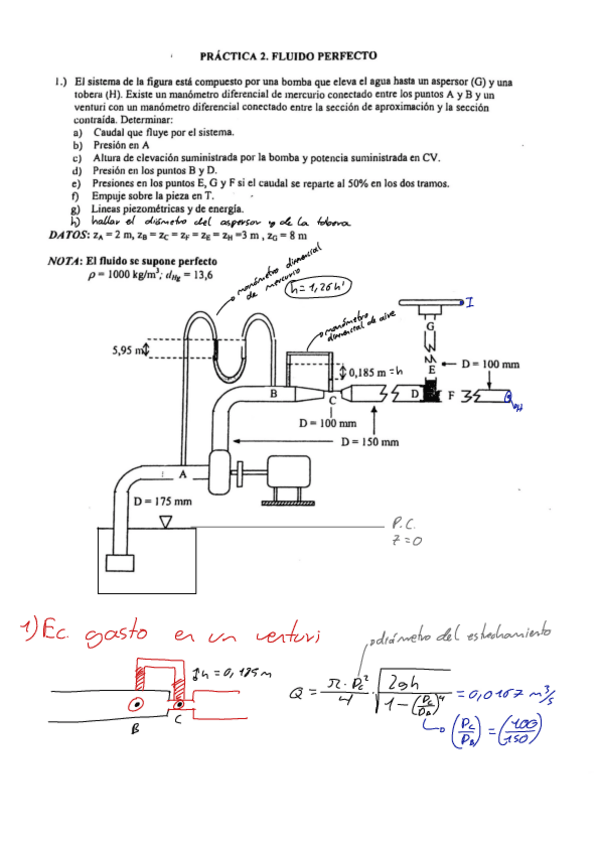 PRÁCTICA 2. FLUIDO PERFECTO
1.) El sistema de la figura está compuesto por una bomba que eleva el agua hasta un aspersor (G) y una
tobera (H). Existe un manómetro diferencial de mercurio conectado entre los puntos A y B y un
venturi con un manómetro diferencial conectado entre la sección de aproximación y la sección
contraída. Determinar:
a) Caudal que fluye por el sistema.
b) Presión en A
c) Altura de elevación suministrada por la bomba y potencia suministrada en CV.
d) Presión en los puntos B y D.
e) Presiones en los puntos E, G y F si el caudal se reparte al 50% en los dos tramos.
f) Empuje sobre la pieza en T.
g) Lineas piezométricas y de energía.
h) hallar el diámetro del aspersor y de la tobera
DATOS: zA = 2 m, zB = zC = zF = zE = zH =3 m , zG = 8 m
NOTA: El fluido se supone perfecto
ρ = 1000 kg/m³; dHg = 13,6
manómetro diferencial
de mercurio
h = 1,26 h'
manómetro
diferencial de aire
I
G
5,95 m
0,185 m = h
E
D = 100 mm
B
C
D
F
H
D = 100 mm
D = 150 mm
A
D = 175 mm
P.C.
z = 0
1) Ec. gasto en un venturi
diámetro del estrechamiento
h = 0,185 m
Q = π · Dc² / 4 · √(2gh / 1 - (Dc/DB)⁴) = 0,0167 m³/s
B
C
(Dc/DB) = (100/150)